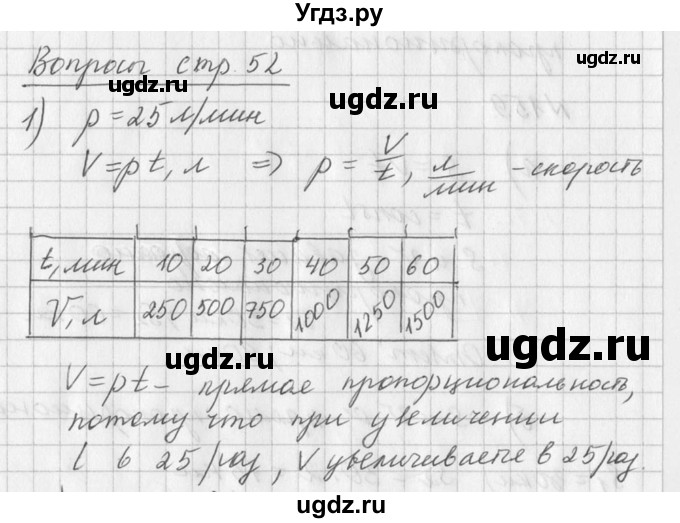 Угдз.ру
Вопросы стр. 52
ugdz.ru ugdz.ru
1) p = 25 л/мин
ugdz.ru
V = pt, л => p = V/t, л/мин - скорость
ugdz.ru
t, мин 10 20 30 40 50 60
V, л 250 500 750 1000 1250 1500
ugdz.ru
ugdz.ru
V = pt - прямая пропорциональность,
ugdz.ru
потому что при увеличении
ugdz.ru
t в 25 раз, V увеличивается в 25 раз.
ugdz.ru
Угдз.ру